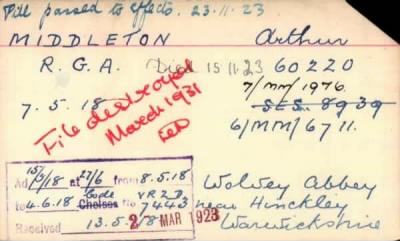 File passed to effects. 23.11.23
MIDDLETON Arthur
R.G.A. Died 15.11.23 60220
7/MM/1976.
7.5.18 SES. 8939
File destroyed March 1931
6/MM/6711.
Ad 15/5/18 at 27/6 from 8.5.18
to 4.6.18 Chelsea No 7443
Received 13.5.18
2 MAR 1923
Wolvey Abbey
near Hinckley
Warwickshire